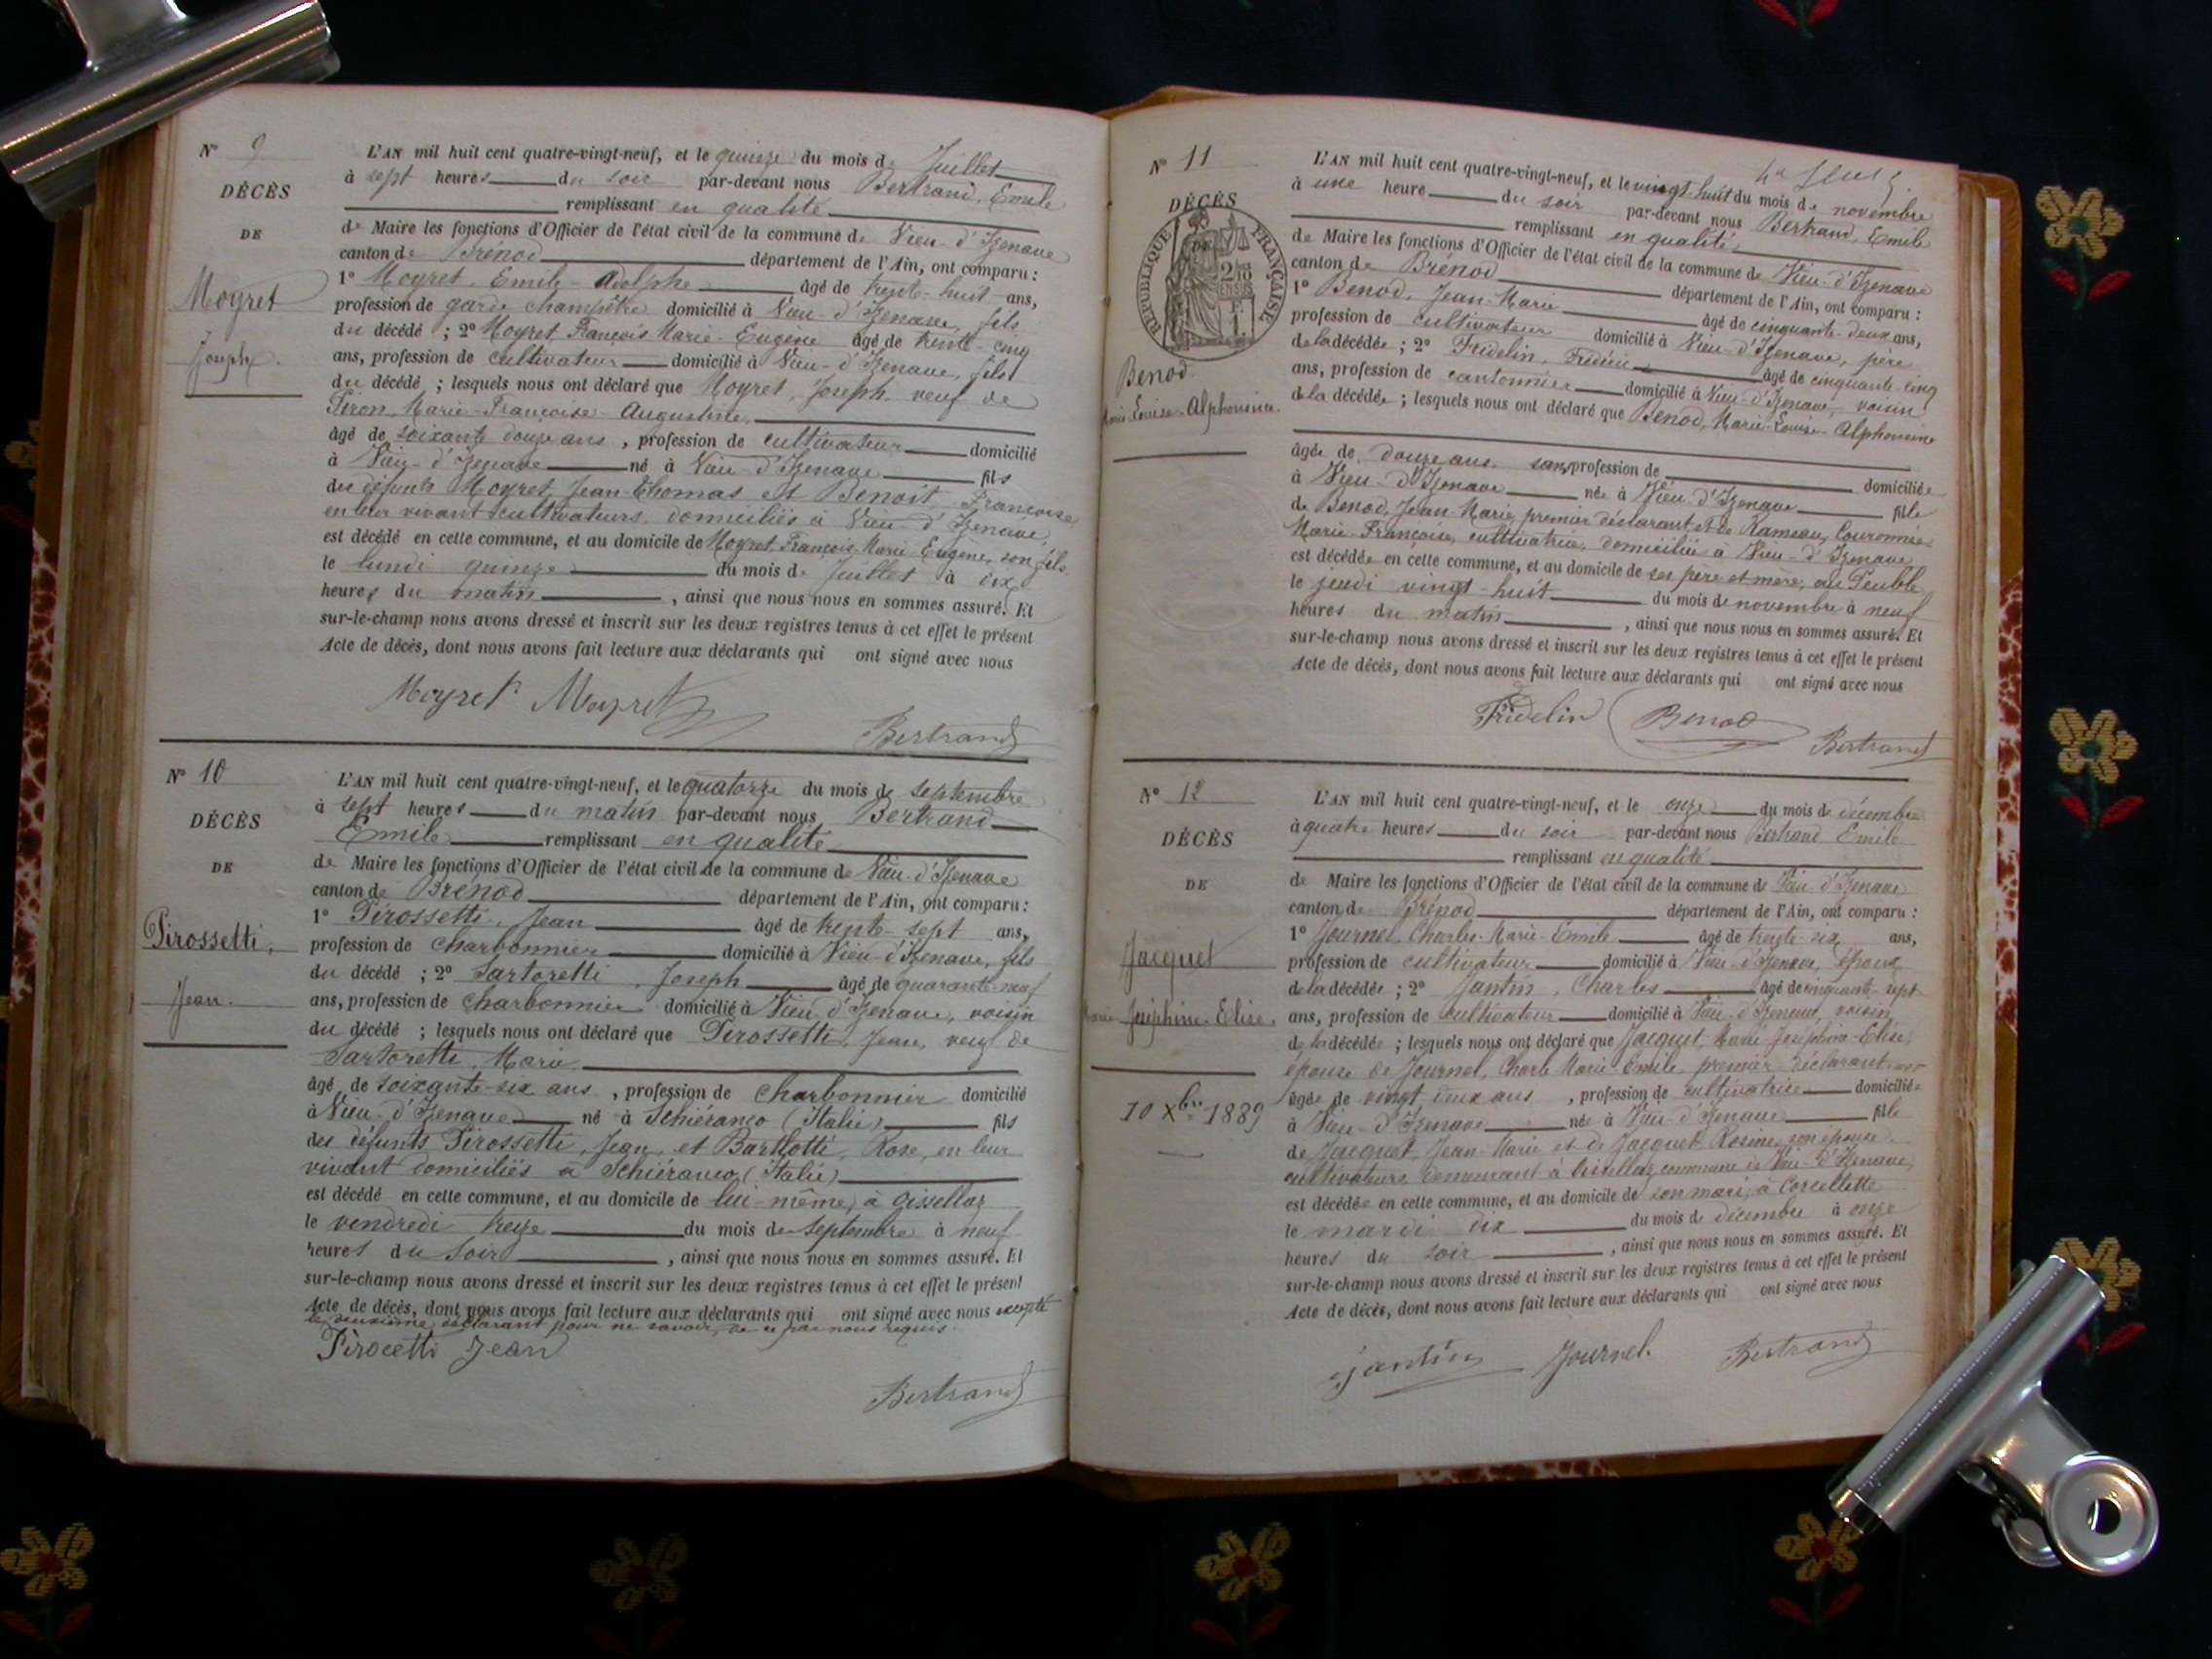 N° 9
DÉCÈS
DE
Moyret
Joseph.
L'AN mil huit cent quatre-vingt-neuf, et le quinze du mois de Juillet
à sept heures du soir par-devant nous Bertrand, Emile
remplissant en qualité
de Maire les fonctions d'Officier de l'état civil de la commune de Vieu-d'Izenave
canton de Brénod département de l'Ain, ont comparu :
1° Moyret, Emile-Adolphe âgé de trente-huit ans,
profession de garde champêtre domicilié à Vieu-d'Izenave, fils
du décédé ; 2° Moyret, François Marie-Eugène âgé de trente-cinq
ans, profession de cultivateur domicilié à Vieu-d'Izenave, fils
du décédé ; lesquels nous ont déclaré que Moyret, Joseph, veuf de
Piron, Marie-Françoise-Augustine,
âgé de soixante douze ans, profession de cultivateur domicilié
à Vieu-d'Izenave né à Vieu-d'Izenave fils
des défunts Moyret, Jean-Thomas et Benoit, Françoise
en leur vivant cultivateurs, domiciliés à Vieu-d'Izenave,
est décédé en cette commune, et au domicile de Moyret François Marie Eugène, son fils
le lundi quinze du mois de Juillet à dix
heures du matin, ainsi que nous nous en sommes assuré. Et
sur-le-champ nous avons dressé et inscrit sur les deux registres tenus à cet effet le présent
Acte de décès, dont nous avons fait lecture aux déclarants qui ont signé avec nous
Moyret Moyret
Bertrand
N° 10
DÉCÈS
DE
Pirossetti,
Jean.
L'AN mil huit cent quatre-vingt-neuf, et le quatorze du mois de septembre
à sept heures du matin par-devant nous Bertrand
Emile remplissant en qualité
de Maire les fonctions d'Officier de l'état civil de la commune de Vieu-d'Izenave
canton de Brénod département de l'Ain, ont comparu :
1° Pirossetti, Jean âgé de trente-sept ans,
profession de charbonnier domicilié à Vieu-d'Izenave, fils
du décédé ; 2° Sartoretti, Joseph âgé de quarante-neuf
ans, profession de charbonnier domicilié à Vieu d'Izenave, voisin
du décédé ; lesquels nous ont déclaré que Pirossetti, Jean, veuf de
Sartoretti, Marie
âgé de soixante-six ans, profession de charbonnier domicilié
à Vieu-d'Izenave né à Schiéranco (Italie) fils
des défunts Pirossetti, Jean, et Bartlotti, Rose, en leur
vivant domiciliés à Schiéranco (Italie)
est décédé en cette commune, et au domicile de lui-même, à Cisellaz
le vendredi treize du mois de septembre à neuf
heures du soir, ainsi que nous nous en sommes assuré. Et
sur-le-champ nous avons dressé et inscrit sur les deux registres tenus à cet effet le présent
Acte de décès, dont nous avons fait lecture aux déclarants qui ont signé avec nous excepté
le deuxième déclarant pour ne savoir, de ce par nous requis.
Pirocetti Jean
Bertrand
N° 11
DÉCÈS
DE
RÉPUBLIQUE FRANÇAISE
Benod
Marie-Louise-Alphonsine.
L'AN mil huit cent quatre-vingt-neuf, et le vingt-huit du mois de novembre
à une heure du soir par-devant nous Bertrand, Emile
remplissant en qualité
de Maire les fonctions d'Officier de l'état civil de la commune de Vieu-d'Izenave
canton de Brénod département de l'Ain, ont comparu :
1° Benod, Jean-Marie âgé de cinquante-deux ans,
profession de cultivateur domicilié à Vieu-d'Izenave, père
de la décédée ; 2° Fridelin, Frédéric âgé de cinquante-cinq
ans, profession de cantonnier domicilié à Vieu-d'Izenave, voisin
de la décédée ; lesquels nous ont déclaré que Benod, Marie-Louise-Alphonsine
âgée de douze ans, sans profession de domiciliée
à Vieu-d'Izenave née à Vieu-d'Izenave fille
de Benod, Jean-Marie, premier déclarant et de Rameau, Couronnée
Marie-Françoise, cultivatrice, domiciliée à Vieu-d'Izenave
est décédée en cette commune, et au domicile de ses père et mère, au Peuble
le jeudi vingt-huit du mois de novembre à neuf
heures du matin, ainsi que nous nous en sommes assuré. Et
sur-le-champ nous avons dressé et inscrit sur les deux registres tenus à cet effet le présent
Acte de décès, dont nous avons fait lecture aux déclarants qui ont signé avec nous
Fridelin Benod
Bertrand
N° 12
DÉCÈS
DE
Jacquet
Marie-Joséphine-Elise.
10 Xbre 1889
L'AN mil huit cent quatre-vingt-neuf, et le onze du mois de décembre
à quatre heures du soir par-devant nous Bertrand Emile
remplissant en qualité
de Maire les fonctions d'Officier de l'état civil de la commune de Vieu-d'Izenave
canton de Brénod département de l'Ain, ont comparu :
1° Journel, Charles-Marie-Emile âgé de trente-six ans,
profession de cultivateur domicilié à Vieu-d'Izenave, époux
de la décédée ; 2° Jantin, Charles âgé de cinquante-sept
ans, profession de cultivateur domicilié à Vieu-d'Izenave, voisin
de la décédée ; lesquels nous ont déclaré que Jacquet, Marie-Joséphine-Elise,
épouse de Journel, Charles Marie Emile, premier déclarant
âgée de vingt deux ans, profession de cultivatrice domiciliée
à Vieu-d'Izenave née à Vieu-d'Izenave fille
de Jacquet, Jean-Marie et de Jacquet Rosine, son épouse
cultivateurs demeurant à Cisellaz commune de Vieu-d'Izenave,
est décédée en cette commune, et au domicile de son mari, à Corcellette
le mardi dix du mois de décembre à onze
heures du soir, ainsi que nous nous en sommes assuré. Et
sur-le-champ nous avons dressé et inscrit sur les deux registres tenus à cet effet le présent
Acte de décès, dont nous avons fait lecture aux déclarants qui ont signé avec nous
Jantin Journel. Bertrand